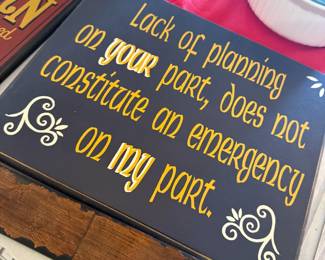 Lack of planning
on your part, does not
constitute an emergency
on my part.